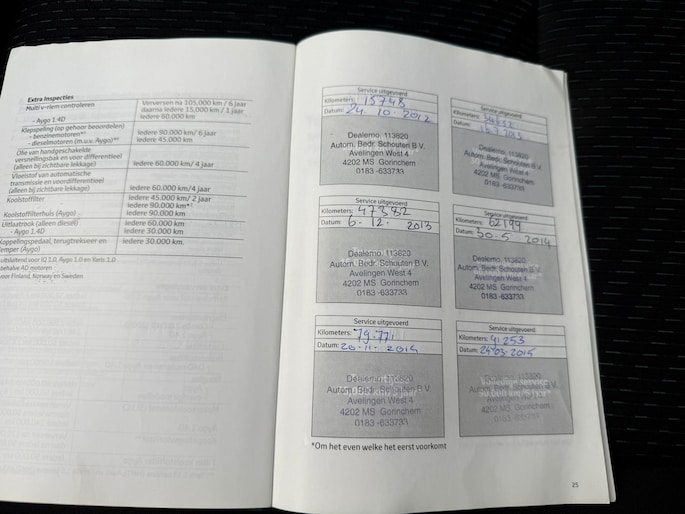 Extra Inspecties
Multi v-riem controleren Verversen na 105.000 km / 6 jaar
daarna iedere 15.000 km / 1 jaar
- Aygo 1.4D iedere 60.000 km
Klepspeling (op gehoor beoordelen)
- benzinemotoren*¹ iedere 90.000 km/ 6 jaar
- dieselmotoren (m.u.v. Aygo)*² iedere 45.000 km
Olie van handgeschakelde
versnellingsbak en voor differentieel
(alleen bij zichtbare lekkage) iedere 60.000 km/ 4 jaar
Vloeistof van automatische
transmissie en voordifferentieel
(alleen bij zichtbare lekkage) iedere 60.000 km/4 jaar
Koolstoffilter iedere 45.000 km/ 2 jaar
iedere 90.000 km*³
Koolstoffilterhuis (Aygo) iedere 90.000 km
Uitlaatrook (alleen diesel) iedere 60.000 km
- Aygo 1.4D iedere 30.000 km
Koppelingspedaal, terugtrekveer en iedere 30.000 km.
demper (Aygo)
uitsluitend voor iQ 1.0, Aygo 1.0 en Yaris 1.0
behalve AD motoren
voor Finland, Noorwegen en Sweden
Service uitgevoerd
Kilometers: 15748
Datum: 24.10.2012
Dealerno. 113820
Autom. Bedr. Schouten B.V.
Avelingen West 4
4202 MS Gorinchem
0183 -633733
Service uitgevoerd
Kilometers:
Datum:
Dealerno. 113820
Autom. Bedr. Schouten B.V.
Avelingen West 4
4202 MS Gorinchem
0183 -633733
Service uitgevoerd
Kilometers: 47382
Datum: 6.12. 2013
Dealerno. 113820
Autom. Bedr. Schouten B.V.
Avelingen West 4
4202 MS Gorinchem
0183 -633733
Service uitgevoerd
Kilometers: 62199
Datum: 30.5 2014
Dealerno. 113820
Autom. Bedr. Schouten B.V.
Avelingen West 4
4202 MS Gorinchem
0183 -633733
Service uitgevoerd
Kilometers: 79.771
Datum: 20.11.2014
Dealerno. 113820
Autom. Bedr. Schouten B.V.
Avelingen West 4
4202 MS Gorinchem
0183 -633733
Service uitgevoerd
Kilometers: 91253
Datum: 24-03-2015
Dealerno. 113820
Autom. Bedr. Schouten B.V.
Avelingen West 4
4202 MS Gorinchem
0183 -633733
*Om het even welke het eerst voorkomt
25